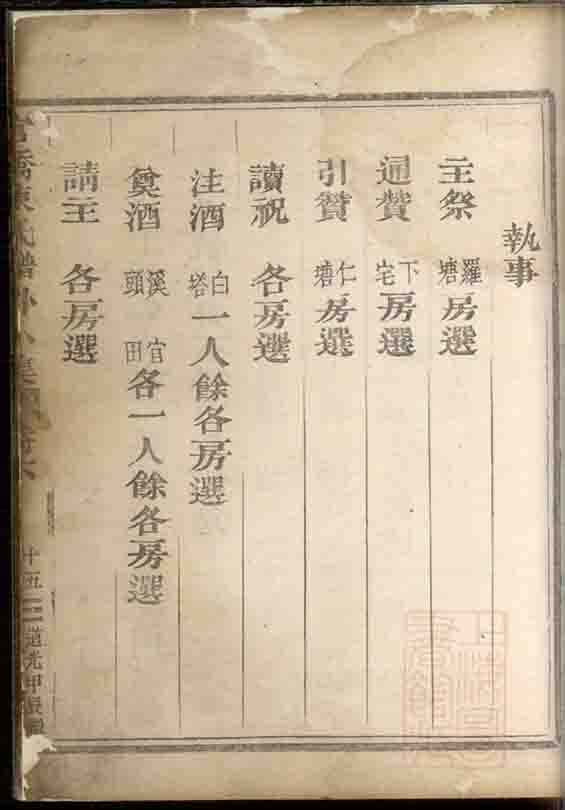 執事
主祭 羅塘房選
通贊 下宅房選
引贊 仁塘房選
讀祝 各房選
注酒 白塔一人餘各房選
奠酒 溪頭 官田各一人餘各房選
請主 各房選
氏譜
十五 道光甲辰
上海圖書館藏